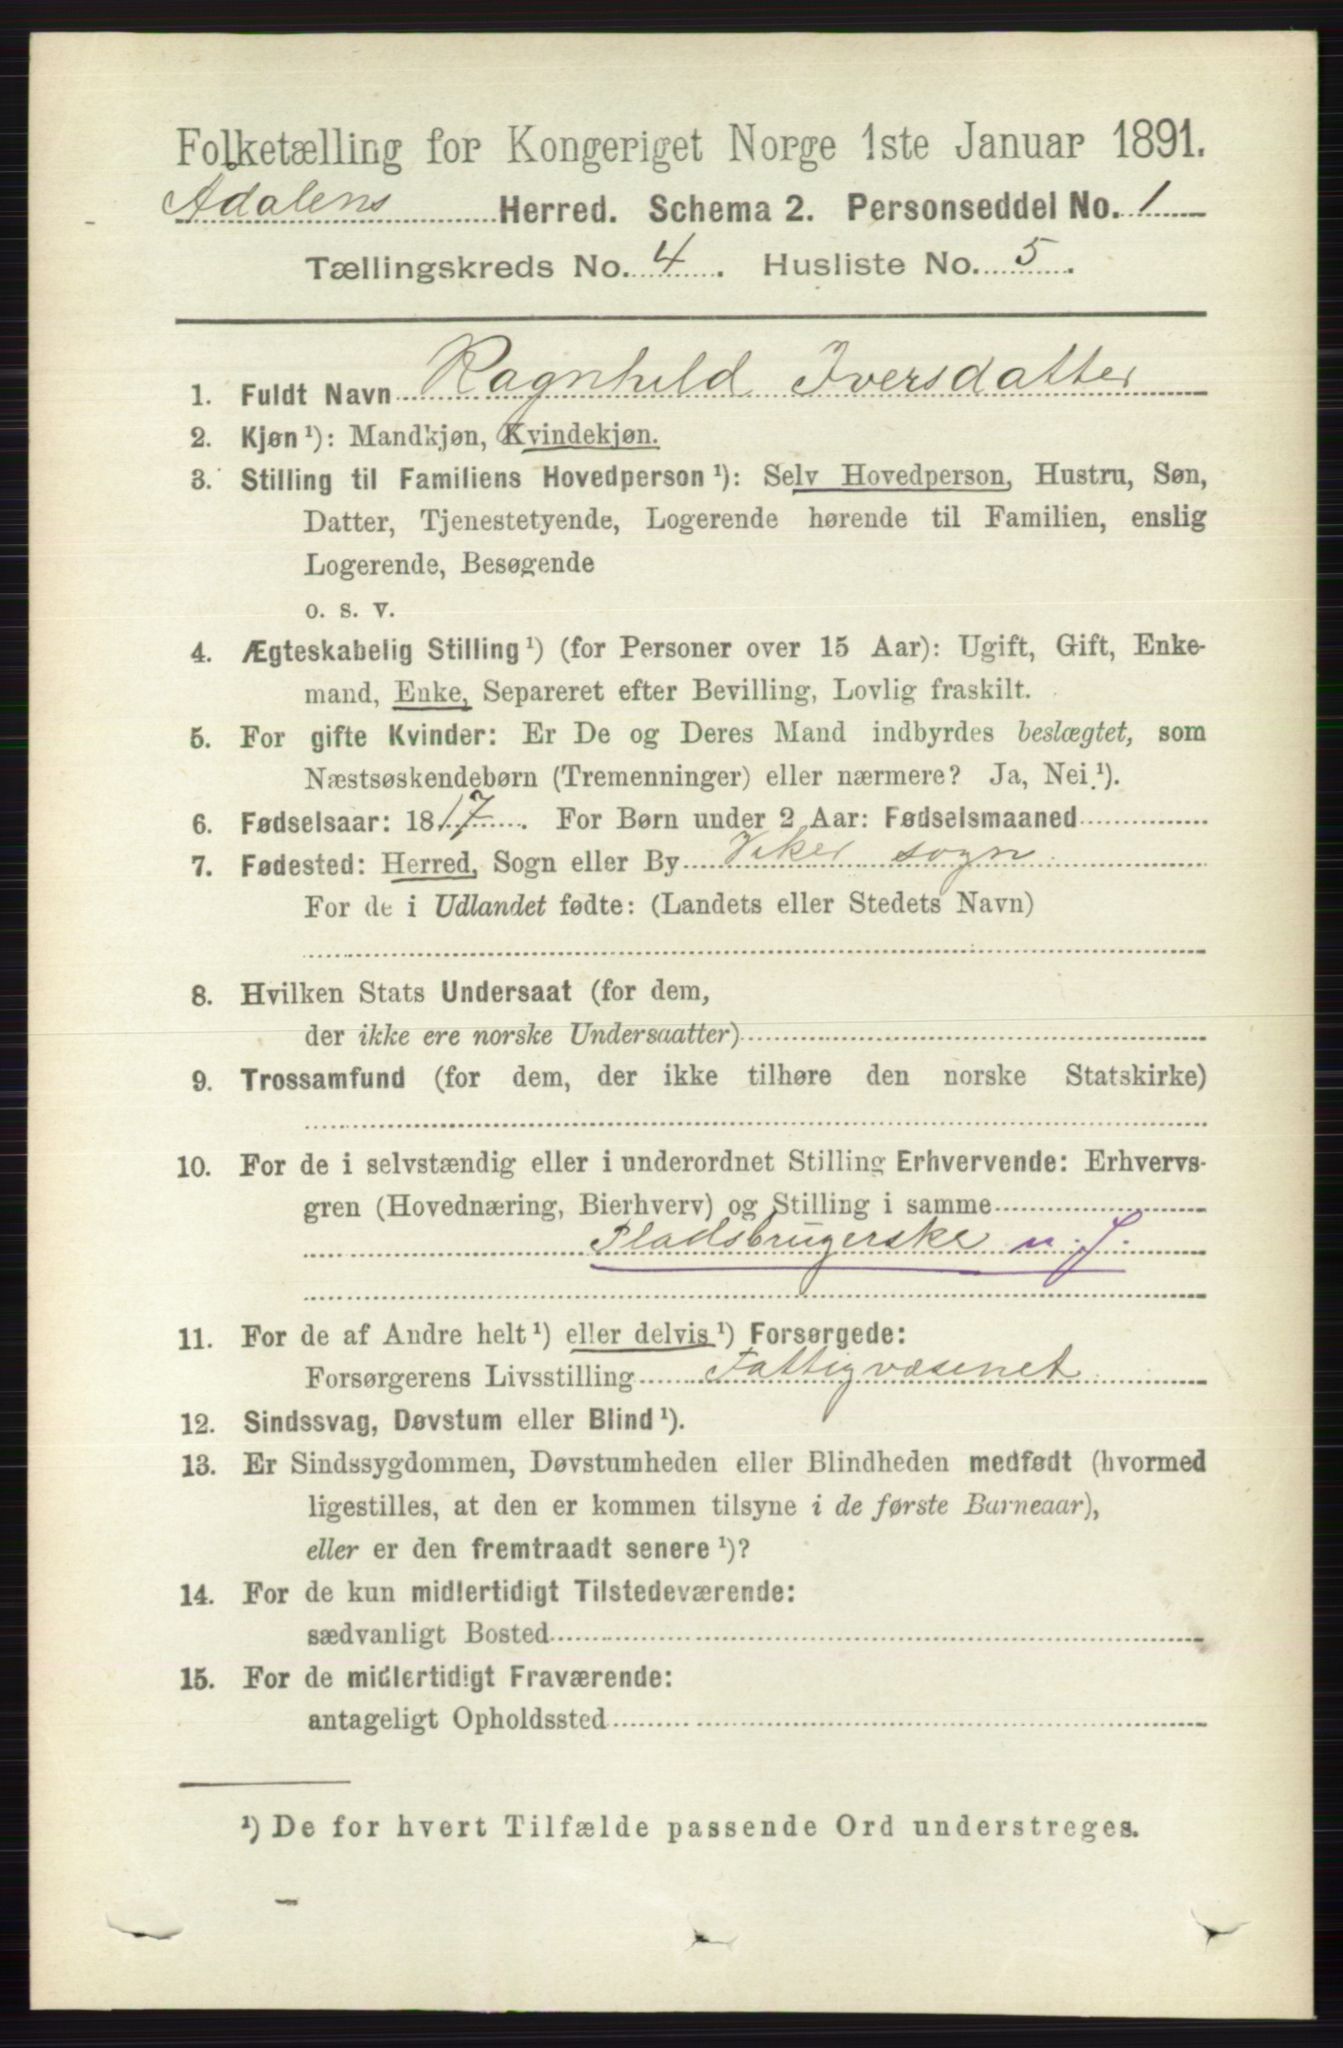 Folketælling for Kongeriget Norge 1ste Januar 1891.
Ådalens Herred. Schema 2. Personseddel No. 1
Tællingskreds No. 4. Husliste No. 5.
1. Fuldt Navn Ragnhild Iversdatter
2. Kjøn ¹): Mandkjøn, Kvindekjøn.
3. Stilling til Familiens Hovedperson ¹): Selv Hovedperson, Hustru, Søn,
Datter, Tjenestetyende, Logerende hørende til Familien, enslig
Logerende, Besøgende
o. s. v.
4. Ægteskabelig Stilling ¹) (for Personer over 15 Aar): Ugift, Gift, Enke-
mand, Enke, Separeret efter Bevilling, Lovlig fraskilt.
5. For gifte Kvinder: Er De og Deres Mand indbyrdes beslægtet, som
Næstsøskendebørn (Tremenninger) eller nærmere? Ja, Nei.¹).
6. Fødselsaar: 1817. For Børn under 2 Aar: Fødselsmaaned
7. Fødested: Herred, Sogn eller By Viker sogn
For de i Udlandet fødte: (Landets eller Stedets Navn)
8. Hvilken Stats Undersaat (for dem,
der ikke ere norske Undersaatter)
9. Trossamfund (for dem, der ikke tilhøre den norske Statskirke)
10. For de i selvstændig eller i underordnet Stilling Erhvervende: Erhvervs-
gren (Hovednæring, Bierhverv) og Stilling i samme
Pladsbrugerske u. J.
11. For de af Andre helt ¹) eller delvis ¹) Forsørgede:
Forsørgerens Livsstilling Fattigvæsenet
12. Sindssvag, Døvstum eller Blind ¹).
13. Er Sindssygdommen, Døvstumheden eller Blindheden medfødt (hvormed
ligestilles, at den er kommen tilsyne i de første Barneaar),
eller er den fremtraadt senere ¹)?
14. For de kun midlertidigt Tilstedeværende:
sædvanligt Bosted
15. For de midlertidigt Fraværende:
antageligt Opholdssted
¹) De for hvert Tilfælde passende Ord understreges.